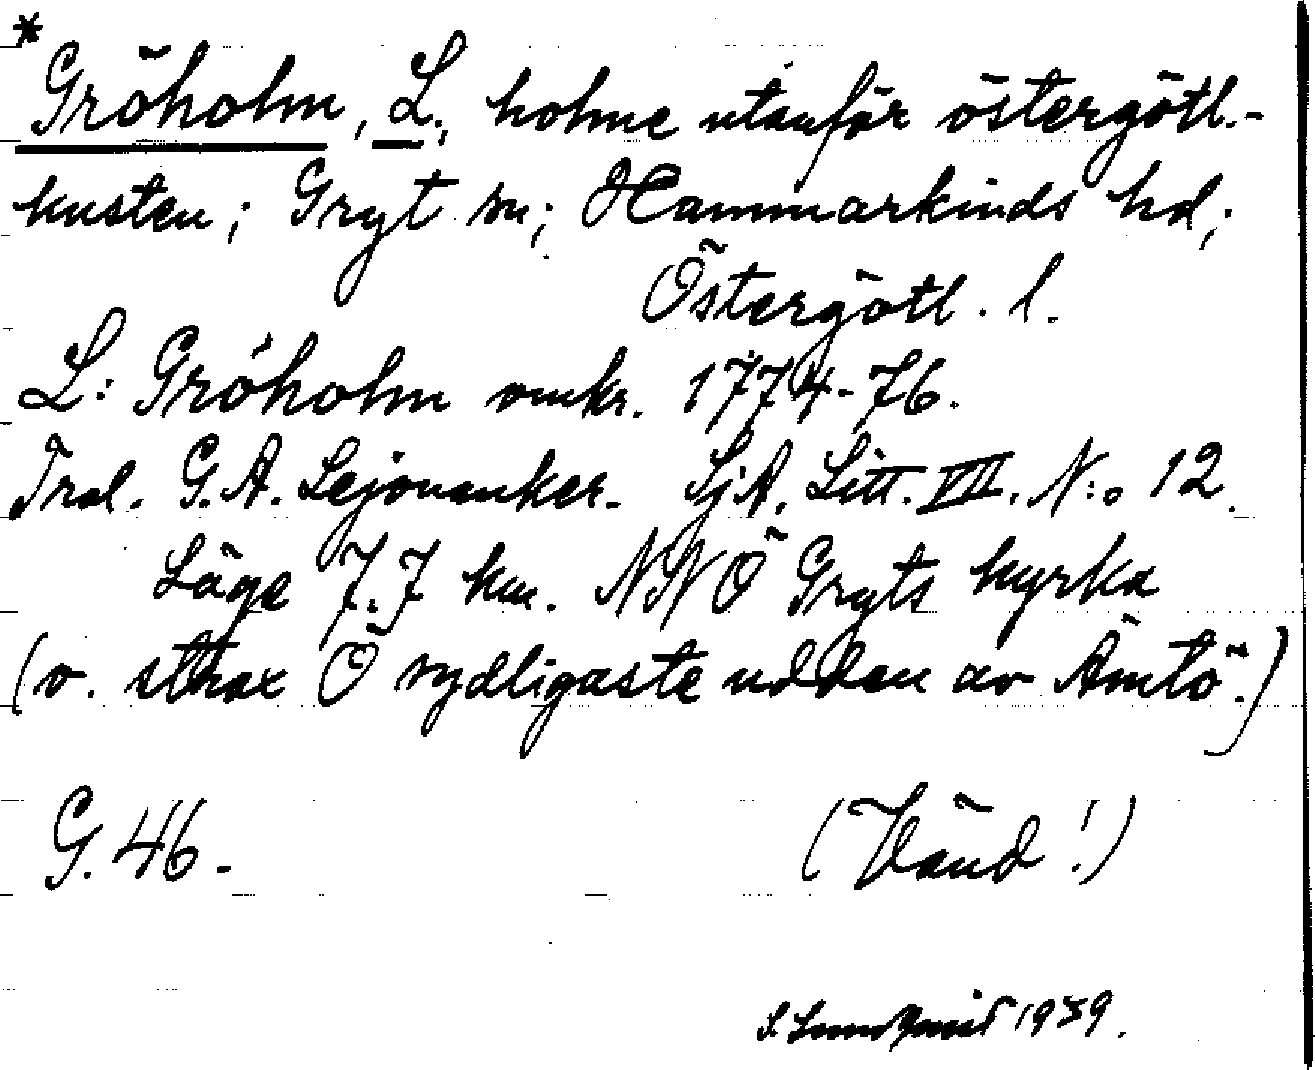 *Gröholm, L., holme utanför östergötl.-
kusten; Gryt sn; Hammarkinds hd;
Östergötl. l.
L: Gröholm omkr. 1774-76.
Trol. G. A. Lejonanker. SjA, Litt. VII. N:o 12.
Läge 7.7 km. NNÖ Gryts kyrka
(o. strax Ö sydligaste udden av Ämtö.)
G. 46.
(Vänd!)
S. Lundqvist 1939.